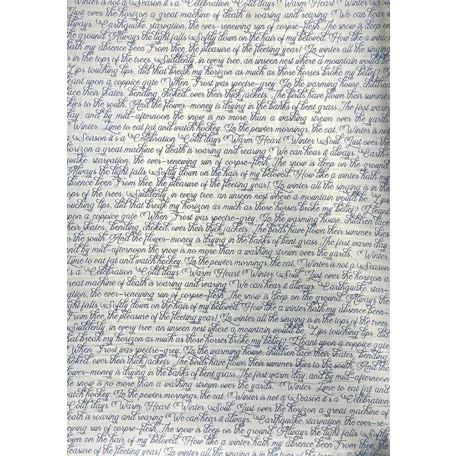 Winter is not a Season it's a Celebration Cold days Warm Heart Winter Soul
Just over the horizon a great machine of death is roaring and rearing We can hear it
always Earthquake, starvation, the ever-renewing sun of corpse-flesh. The snow is deep on
the ground. Always the light falls Softly down on the hair of my beloved. How like a winter
hath my absence been From thee, the pleasure of the fleeting year! In winter all the singing
is in the tops of the trees. Suddenly, in every tree, an unseen nest where a mountain would be.
Lips touching lips, did that break my horizon as much as those horses broke my belief.
leant upon a coppice gate When Frost was spectre-grey. In the warming house, children
lace their skates, bending, choked, over their thick jackets. The birds have flown their summer
skies to the south, And the flower-money is drying in the banks of bent grass. The first warm
day, and by mid-afternoon the snow is no more than a washing strewn over the yards.
Winter. Time to eat fat and watch hockey. In the pewter mornings, the cat, Winter is not
a Season it's a Celebration Cold days Warm Heart Winter Soul. Just over the
horizon a great machine of death is roaring and rearing We can hear it always. Earth-
quake, starvation, the ever-renewing sun of corpse-flesh. The snow is deep on the ground.
Always the light falls Softly down on the hair of my beloved. How like a winter hath my
absence been From thee, the pleasure of the fleeting year! In winter all the singing is in the
tops of the trees. Suddenly, in every tree, an unseen nest where a mountain would be.
touching lips, did that break my horizon as much as those horses broke my belief. I leant
upon a coppice gate When Frost was spectre-grey. In the warming house, children lace
their skates, bending, choked, over their thick jackets. The birds have flown their summer skies
to the south, And the flower-money is drying in the banks of bent grass. The first warm day,
and by mid-afternoon the snow is no more than a washing strewn over the yards. Winter.
Time to eat fat and watch hockey. In the pewter mornings, the cat, Winter is not a Season
it's a Celebration Cold days Warm Heart Winter Soul. Just over the horizon a
great machine of death is roaring and rearing We can hear it always. Earthquake, star-
vation, the ever-renewing sun of corpse-flesh. The snow is deep on the ground. Always the
light falls Softly down on the hair of my beloved. How like a winter hath my absence been
From thee, the pleasure of the fleeting year! In winter all the singing is in the tops of the trees.
Suddenly, in every tree, an unseen nest where a mountain would be. Lips touching lips,
did that break my horizon as much as those horses broke my belief. I leant upon a coppice gate
When Frost was spectre-grey. In the warming house, children lace their skates, bending,
choked, over their thick jackets. The birds have flown their summer skies to the south, And the
flower-money is drying in the banks of bent grass. The first warm day, and by mid-afternoon
the snow is no more than a washing strewn over the yards. Winter. Time to eat fat and
watch hockey. In the pewter mornings, the cat, Winter is not a Season it's a Celebration
Cold days Warm Heart Winter Soul. Just over the horizon a great machine of
death is roaring and rearing We can hear it always. Earthquake, starvation, the ever-ren-
ewing sun of corpse-flesh. The snow is deep on the ground. Always the light falls Softly
down on the hair of my beloved. How like a winter hath my absence been From thee, the
pleasure of the fleeting year! In winter all the singing is in the tops of the trees. Suddenly,